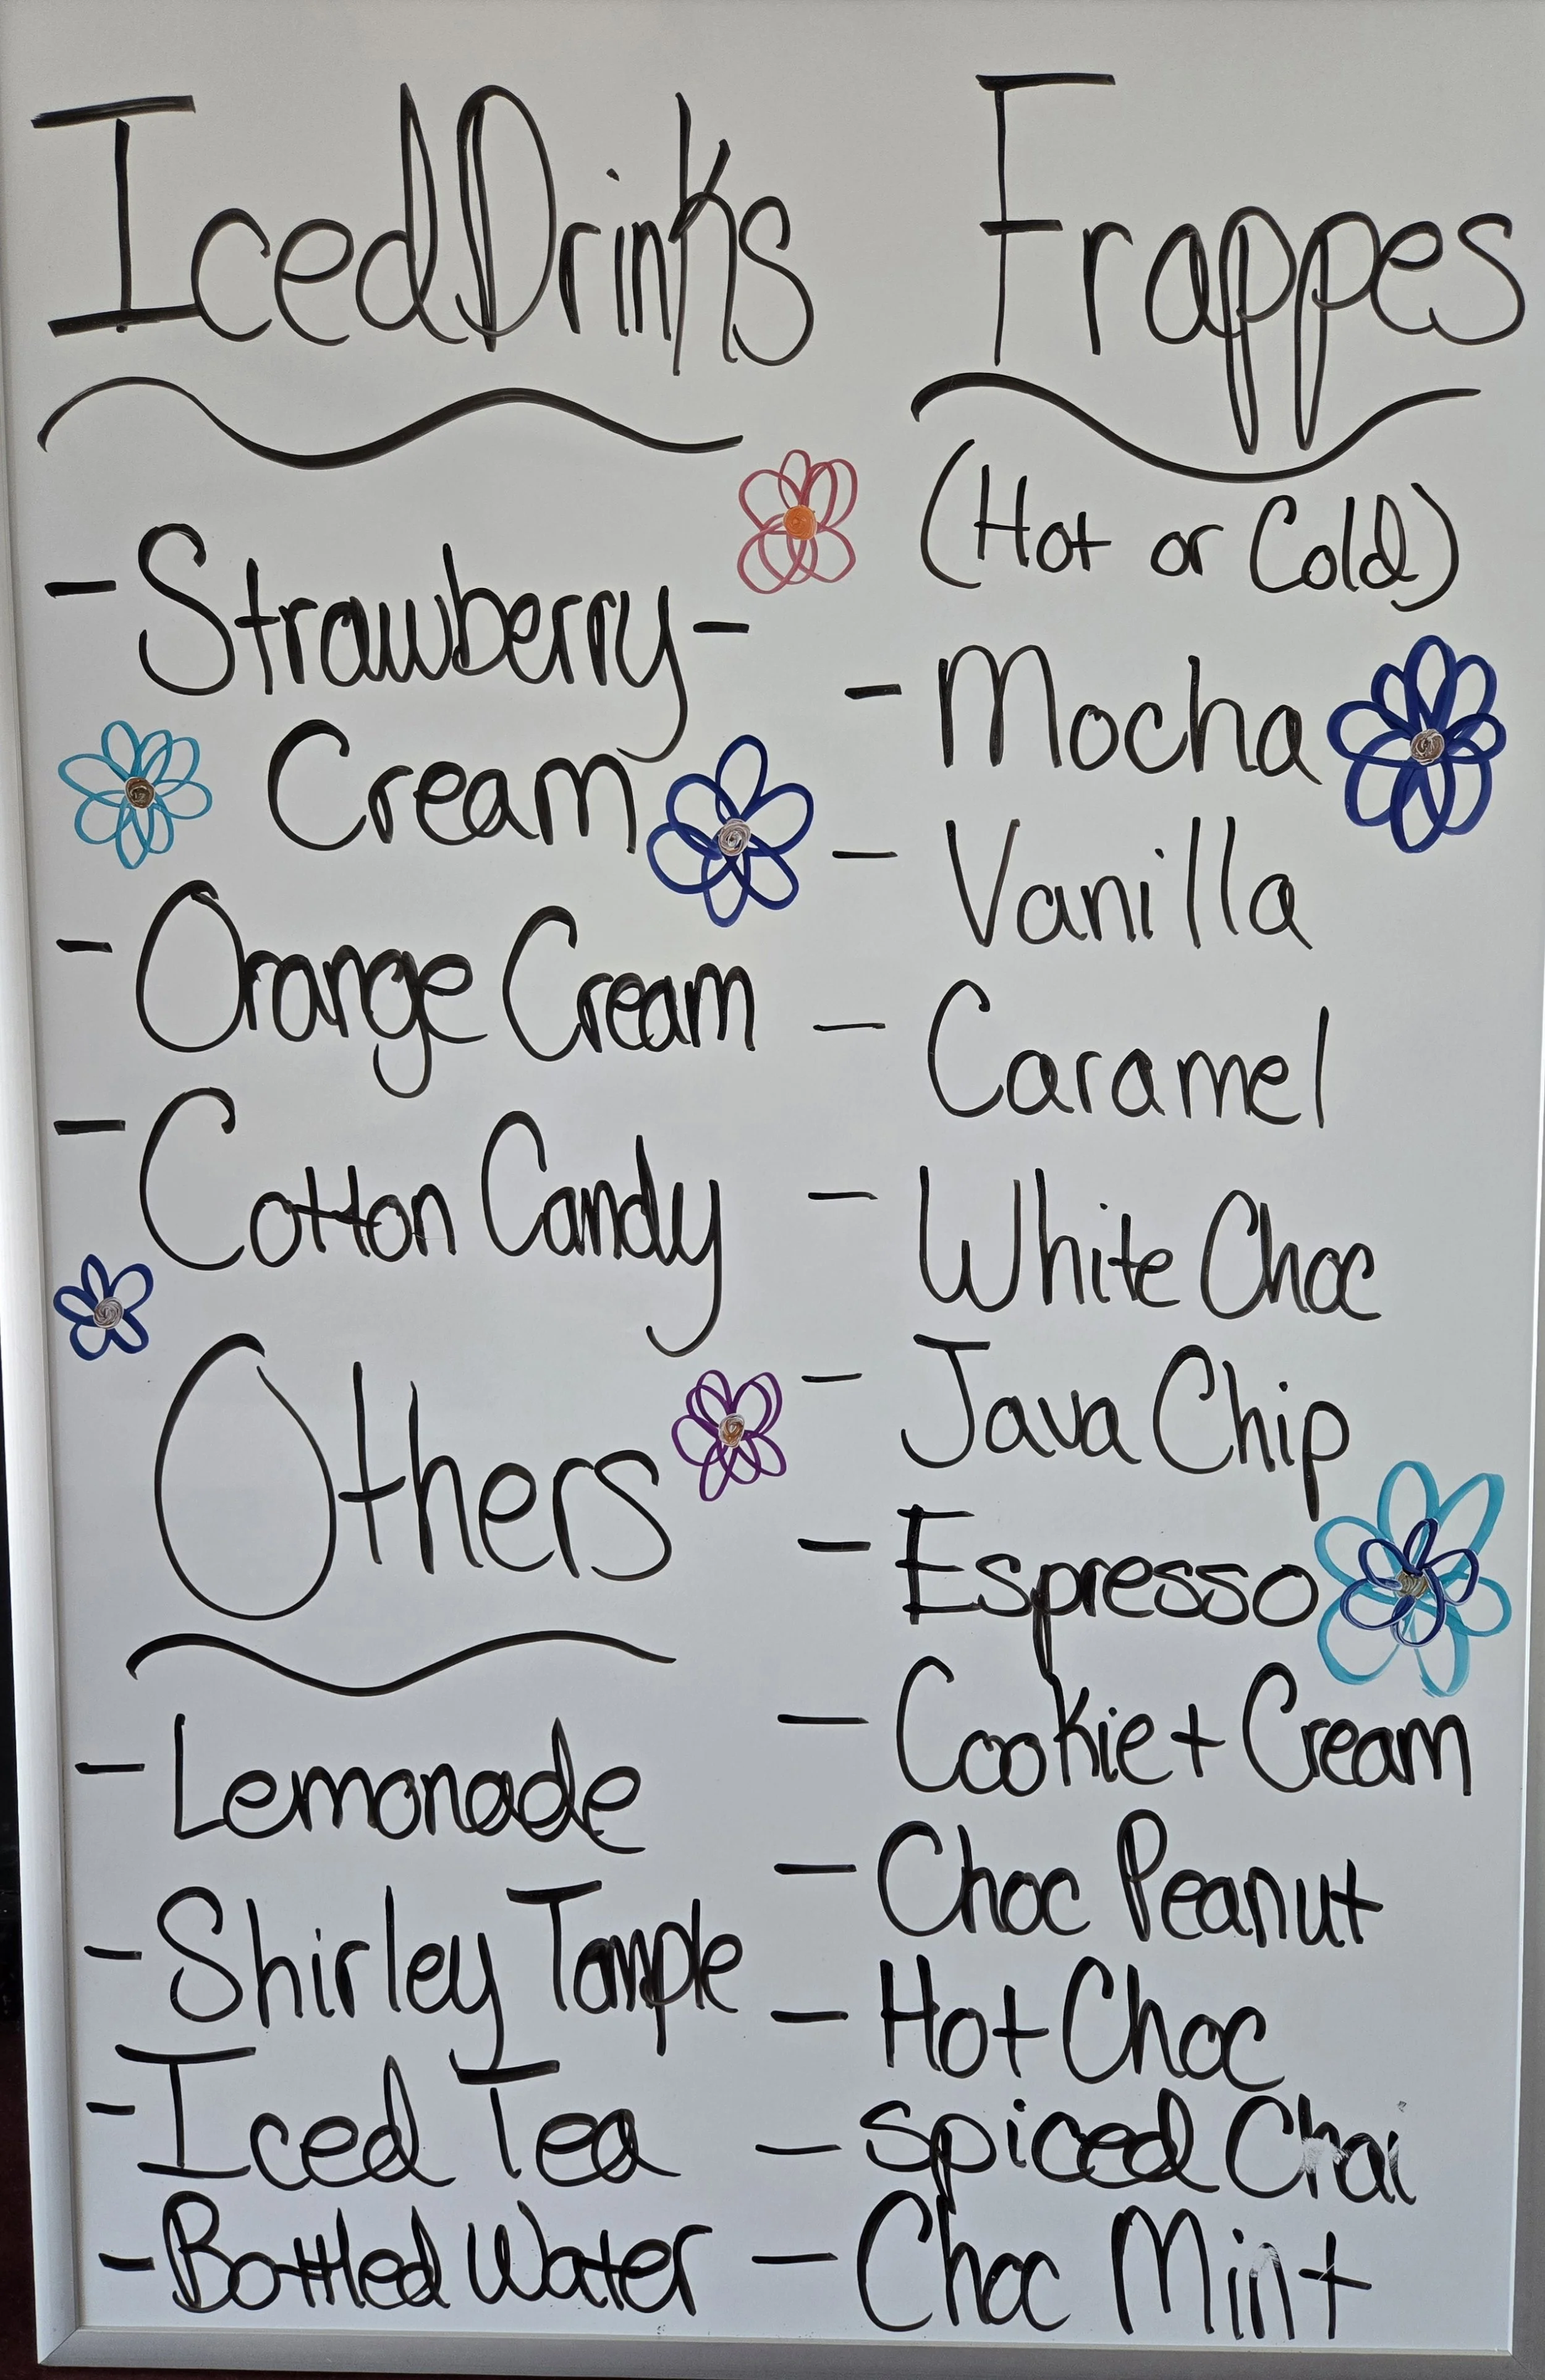 Iced Drinks
- Strawberry -
Cream
- Orange Cream
- Cotton Candy
Others
- Lemonade
- Shirley Temple
- Iced Tea
- Bottled Water
Frappes
(Hot or Cold)
- Mocha
- Vanilla
- Caramel
- White Choc
- Java Chip
- Espresso
- Cookie + Cream
- Choc Peanut
- Hot Choc
- Spiced Chai
- Choc Mint